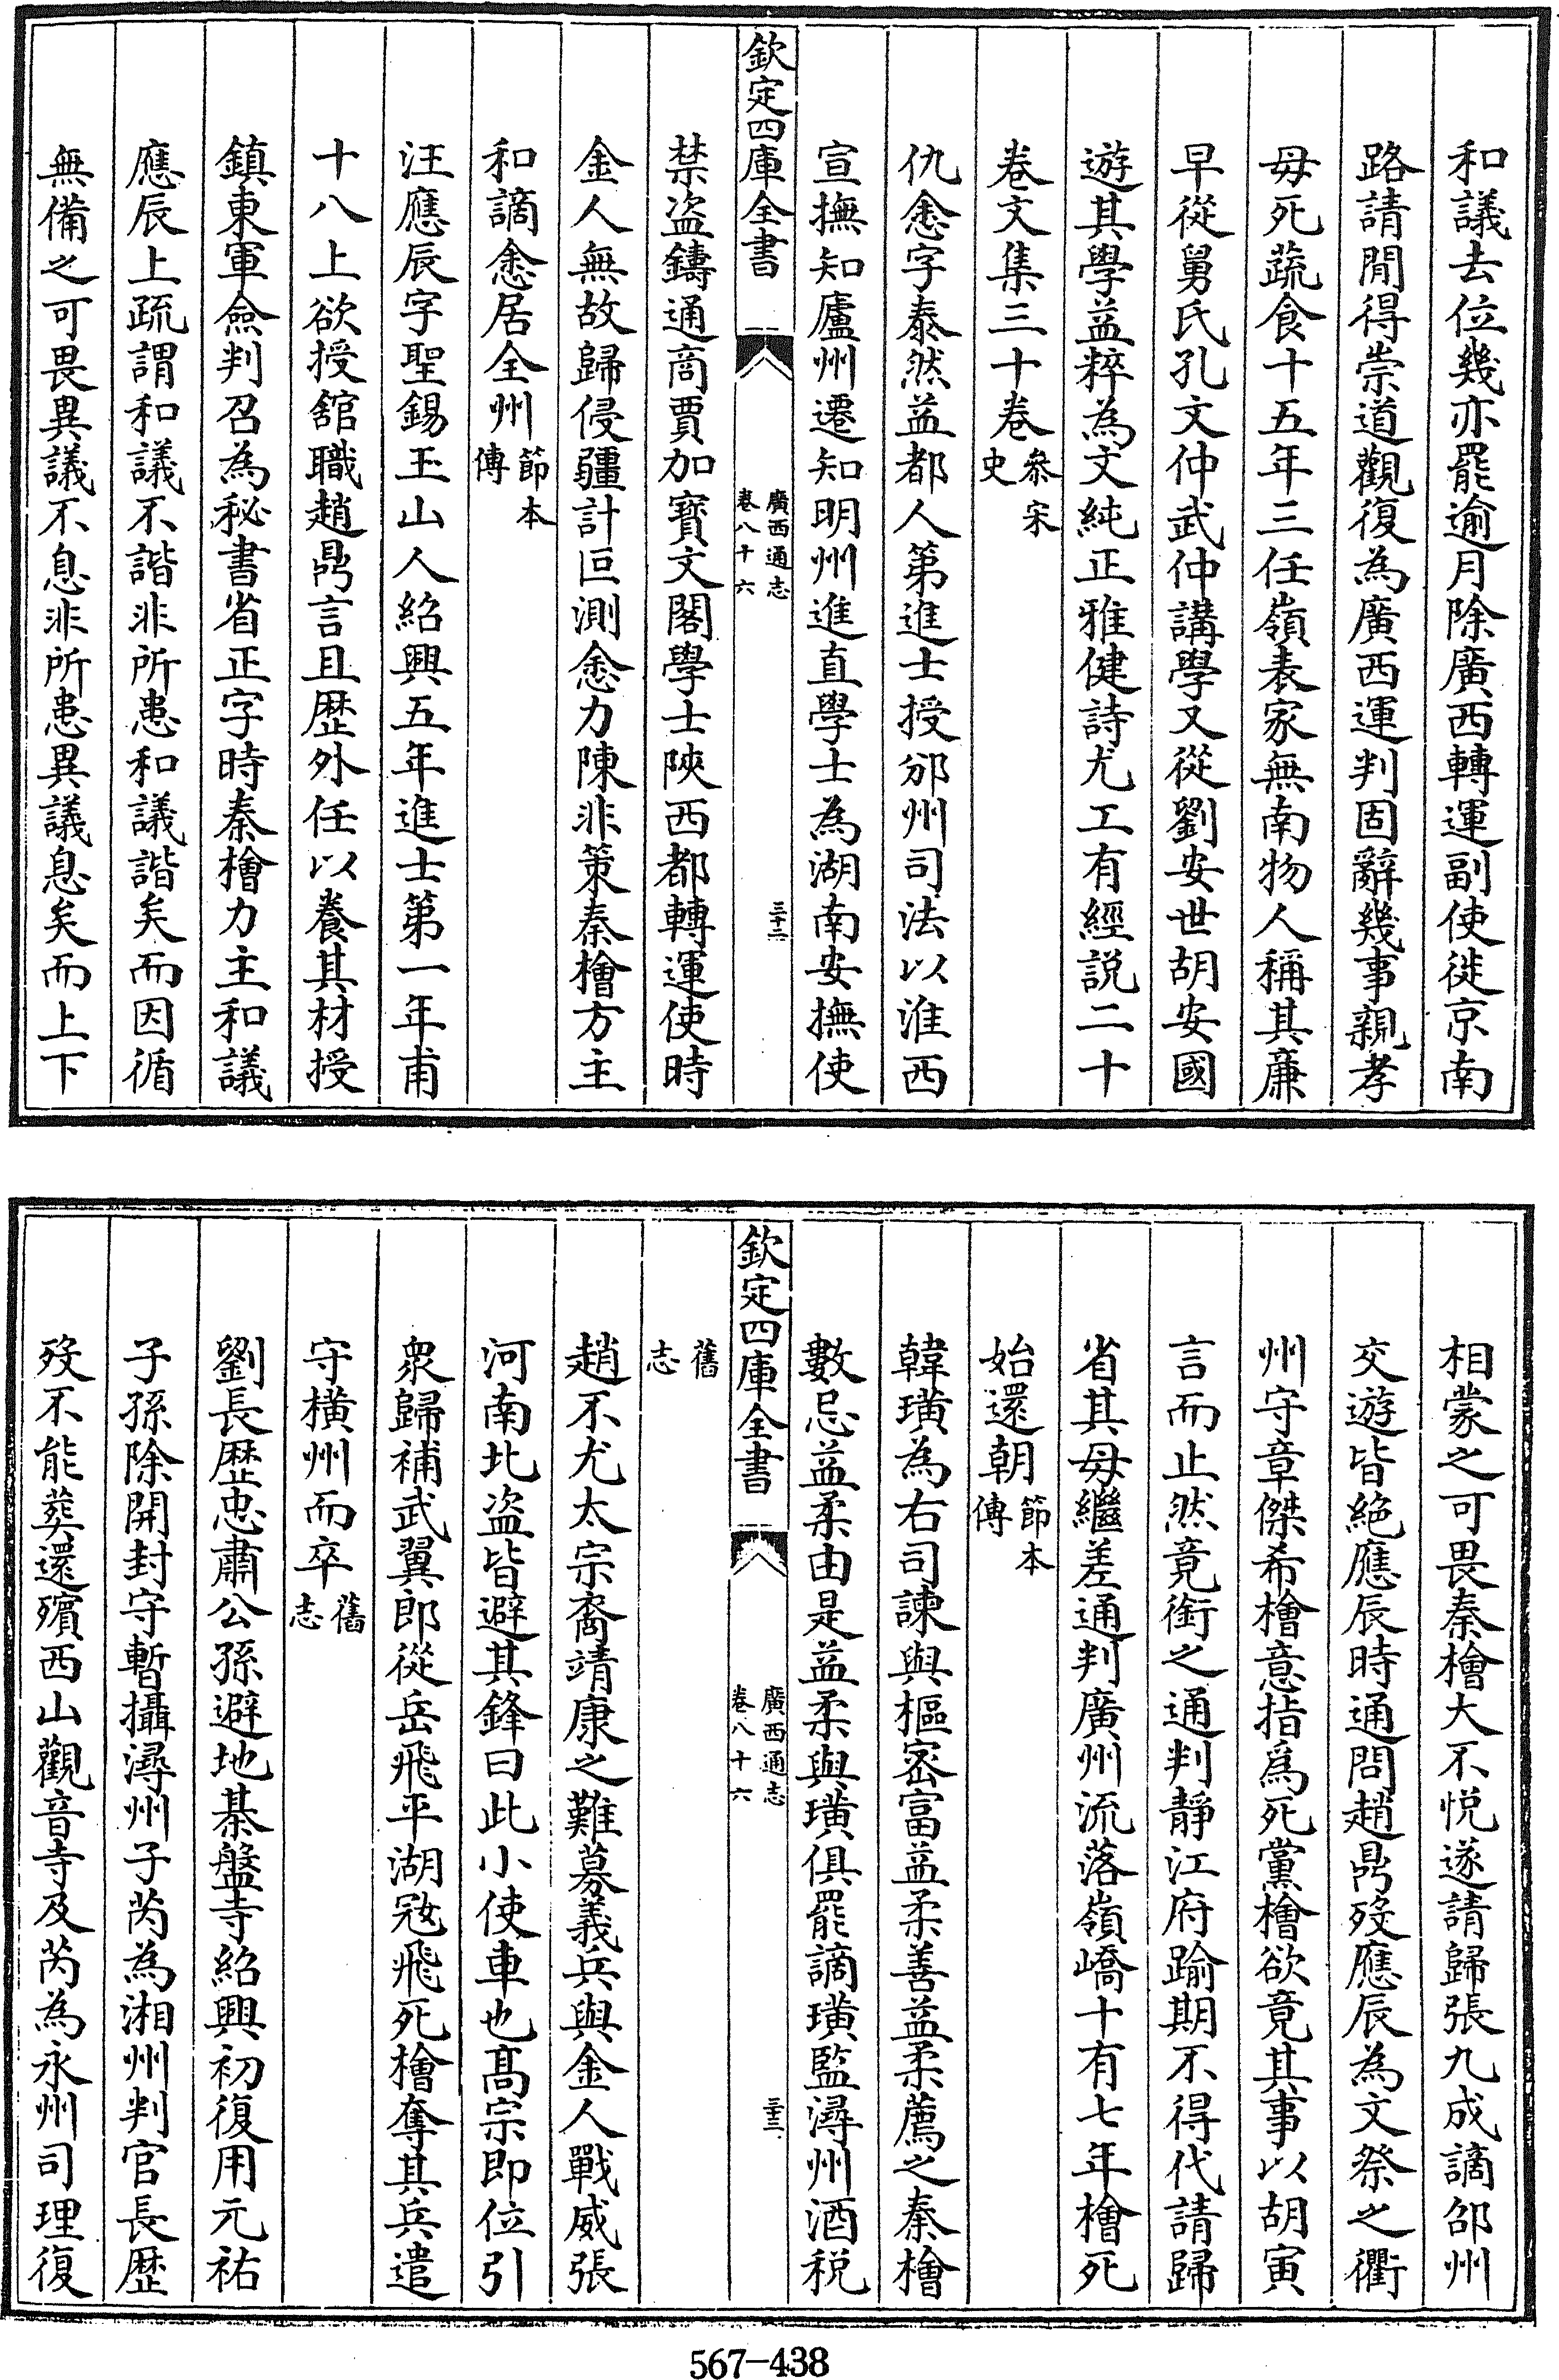 和議去位幾亦罷逾月除廣西轉運副使徙京南
路請閒得崇道觀復為廣西運判固辭幾事親孝
毋死蔬食十五年三任嶺表家無南物人稱其廉
早從舅氏孔文仲武仲講學又從劉安世胡安國
遊其學益粹為文純正雅健詩尤工有經説二十
卷文集三十卷 叅宋史
仇悆字泰然益都人第進士授邠州司法以淮西
宣撫知廬州遷知明州進直學士為湖南安撫使
欽定四庫全書 廣西通志 卷八十六 三十二
禁盗鑄通商賈加寳文閣學士陜西都轉運使時
金人無故歸侵疆計叵測悆力陳非策秦檜方主
和謫悆居全州 節本傳
汪應辰字聖錫玉山人紹興五年進士第一年甫
十八上欲授舘職趙鼎言且歴外任以養其材授
鎮東軍僉判召為秘書省正字時秦檜力主和議
應辰上疏謂和議不諧非所患和議諧矣而因循
無備之可畏異議不息非所患異議息矣而上下
相蒙之可畏秦檜大不悦遂請歸張九成謫邵州
交遊皆絶應辰時通問趙鼎歿應辰為文祭之衢
州守章傑希檜意指爲死黨檜欲竟其事以胡寅
言而止然竟銜之通判靜江府踰期不得代請歸
省其毋繼差通判廣州流落嶺嶠十有七年檜死
始還朝 節本傳
韓璜為右司諫與樞密富益柔善益柔薦之秦檜
數忌益柔由是益柔與璜俱罷謫璜監潯州酒税
欽定四庫全書 廣西通志 卷八十六 三十三
舊志
趙不尤太宗裔靖康之難募義兵與金人戰威張
河南北盗皆避其鋒曰此小使車也髙宗即位引
衆歸補武翼郎從岳飛平湖冦飛死檜奪其兵遣
守横州而卒 舊志
劉長歴忠肅公孫避地棊盤寺紹興初復用元祐
子孫除開封守暫攝潯州子芮為湘州判官長歴
歿不能葬還殯西山觀音寺及芮為永州司理復
567-438